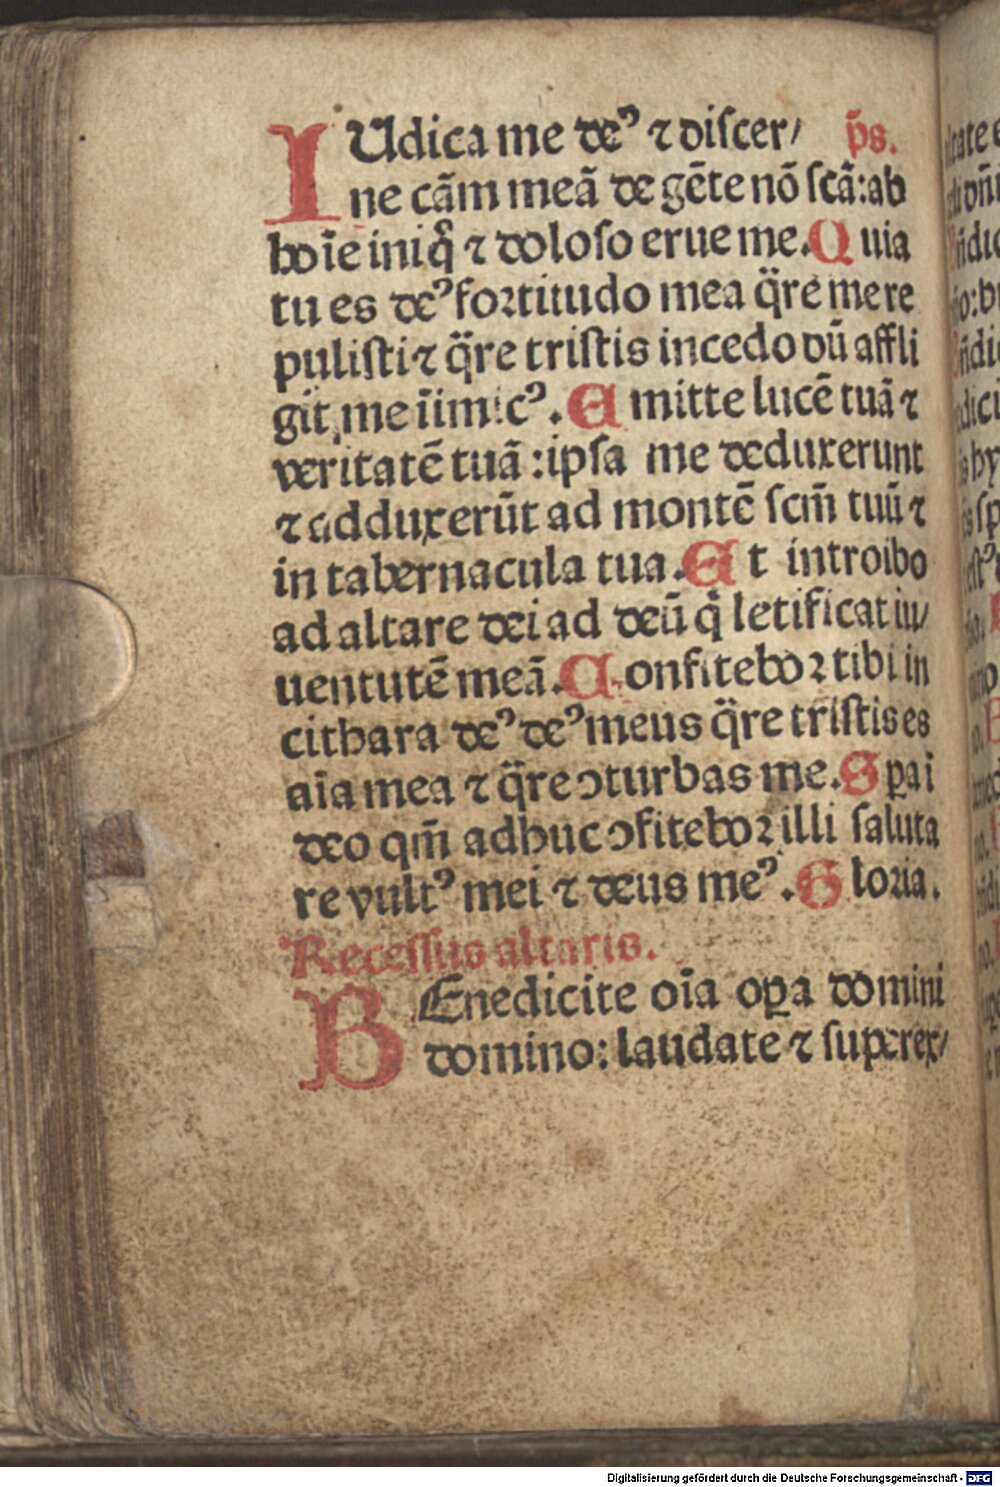 IUdica me deꝰ ⁊ discer/ p̄s.
ne cãm meã de gẽte nõ ſcã: ab
hoĩe iniq̃ ⁊ doloſo erue me. Quia
tu es deꝰ fortitudo mea q̃re me re
puliſti ⁊ q̃re triſtis incedo dũ affli
git me inimicꝰ. Emitte lucẽ tuã ⁊
veritatẽ tuã: ipſa me deduxerunt
⁊ adduxerũt ad montẽ ſcm̃ tuũ ⁊
in tabernacula tua. Et introibo
ad altare dei ad deũ q̃ letificat iu/
uentutẽ meã. Confitebor tibi in
cithara deꝰ deꝰ meus q̃re triſtis es
aĩa mea ⁊ q̃re ꝯturbas me. Sꝑa ĩ
deo qm̃ adhuc ꝯfitebor illi ſaluta
re vultꝰ mei ⁊ deus meꝰ. Gloria.
Receſſus altaris.
BEnedicite oĩa oꝑa domini
domino: laudate ⁊ superex/
Digitalisierung gefördert durch die Deutsche Forschungsgemeinschaft - DFG